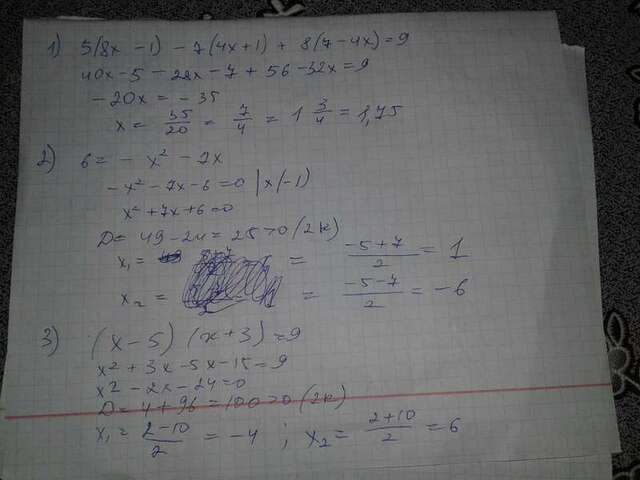 1) 5(8x - 1) - 7(4x+1) + 8(7-4x)=9
40x-5-28x-7+56-32x=9
-20x = -35
x = 35/20 = 7/4 = 1 3/4 = 1,75
2) 6 = - x² - 7x
-x² - 7x - 6 = 0 | x(-1)
x² + 7x + 6 = 0
D = 49 - 24 = 25 > 0 (2к)
x₁ = = (-5+7)/2 = 1
x₂ = = (-5-7)/2 = -6
3) (x-5)(x+3)=9
x² + 3x - 5x - 15 = 9
x² - 2x - 24 = 0
D = 4 + 96 = 100 > 0 (2к)
x₁ = (2-10)/2 = -4 ; x₂ = (2+10)/2 = 6